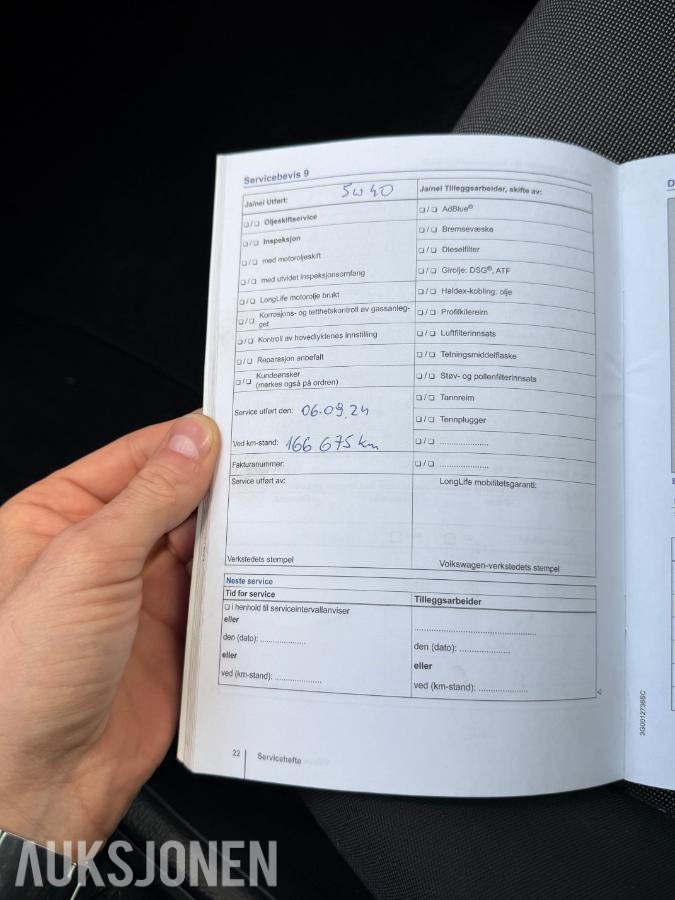 Servicebevis 9
Ja/nei Utført: 5W40
❑/❑ Oljeskiftservice
❑/❑ Inspeksjon
❑/❑ med motoroljeskift
❑/❑ med utvidet inspeksjonsomfang
❑/❑ LongLife motorolje brukt
❑/❑ Korrosjons- og tetthetskontroll av gassanleg-
get
❑/❑ Kontroll av hovedlyktenes innstilling
❑/❑ Reparasjon anbefalt
❑/❑ Kundeønsker
(merkes også på ordren)
Service utført den: 06.09.24
Ved km-stand: 166 675 km
Fakturanummer:
Service utført av:
Verkstedets stempel
Ja/nei Tilleggsarbeider, skifte av:
❑/❑ AdBlue®
❑/❑ Bremsevæske
❑/❑ Dieselfilter
❑/❑ Girolje: DSG®, ATF
❑/❑ Haldex-kobling: olje
❑/❑ Profilkilereim
❑/❑ Luftfilterinnsats
❑/❑ Tetningsmiddelflaske
❑/❑ Støv- og pollenfilterinnsats
❑/❑ Tannreim
❑/❑ Tennplugger
❑/❑ ......................
❑/❑ ......................
LongLife mobilitetsgaranti:
Volkswagen-verkstedets stempel
Neste service
Tid for service
❑ i henhold til serviceintervallanviser
eller
den (dato): ....................
eller
ved (km-stand): ....................
Tilleggsarbeider
..........................................
den (dato): ......................
eller
ved (km-stand): ......................
22
Servicehefte
3G0012736SC
AUKSJONEN